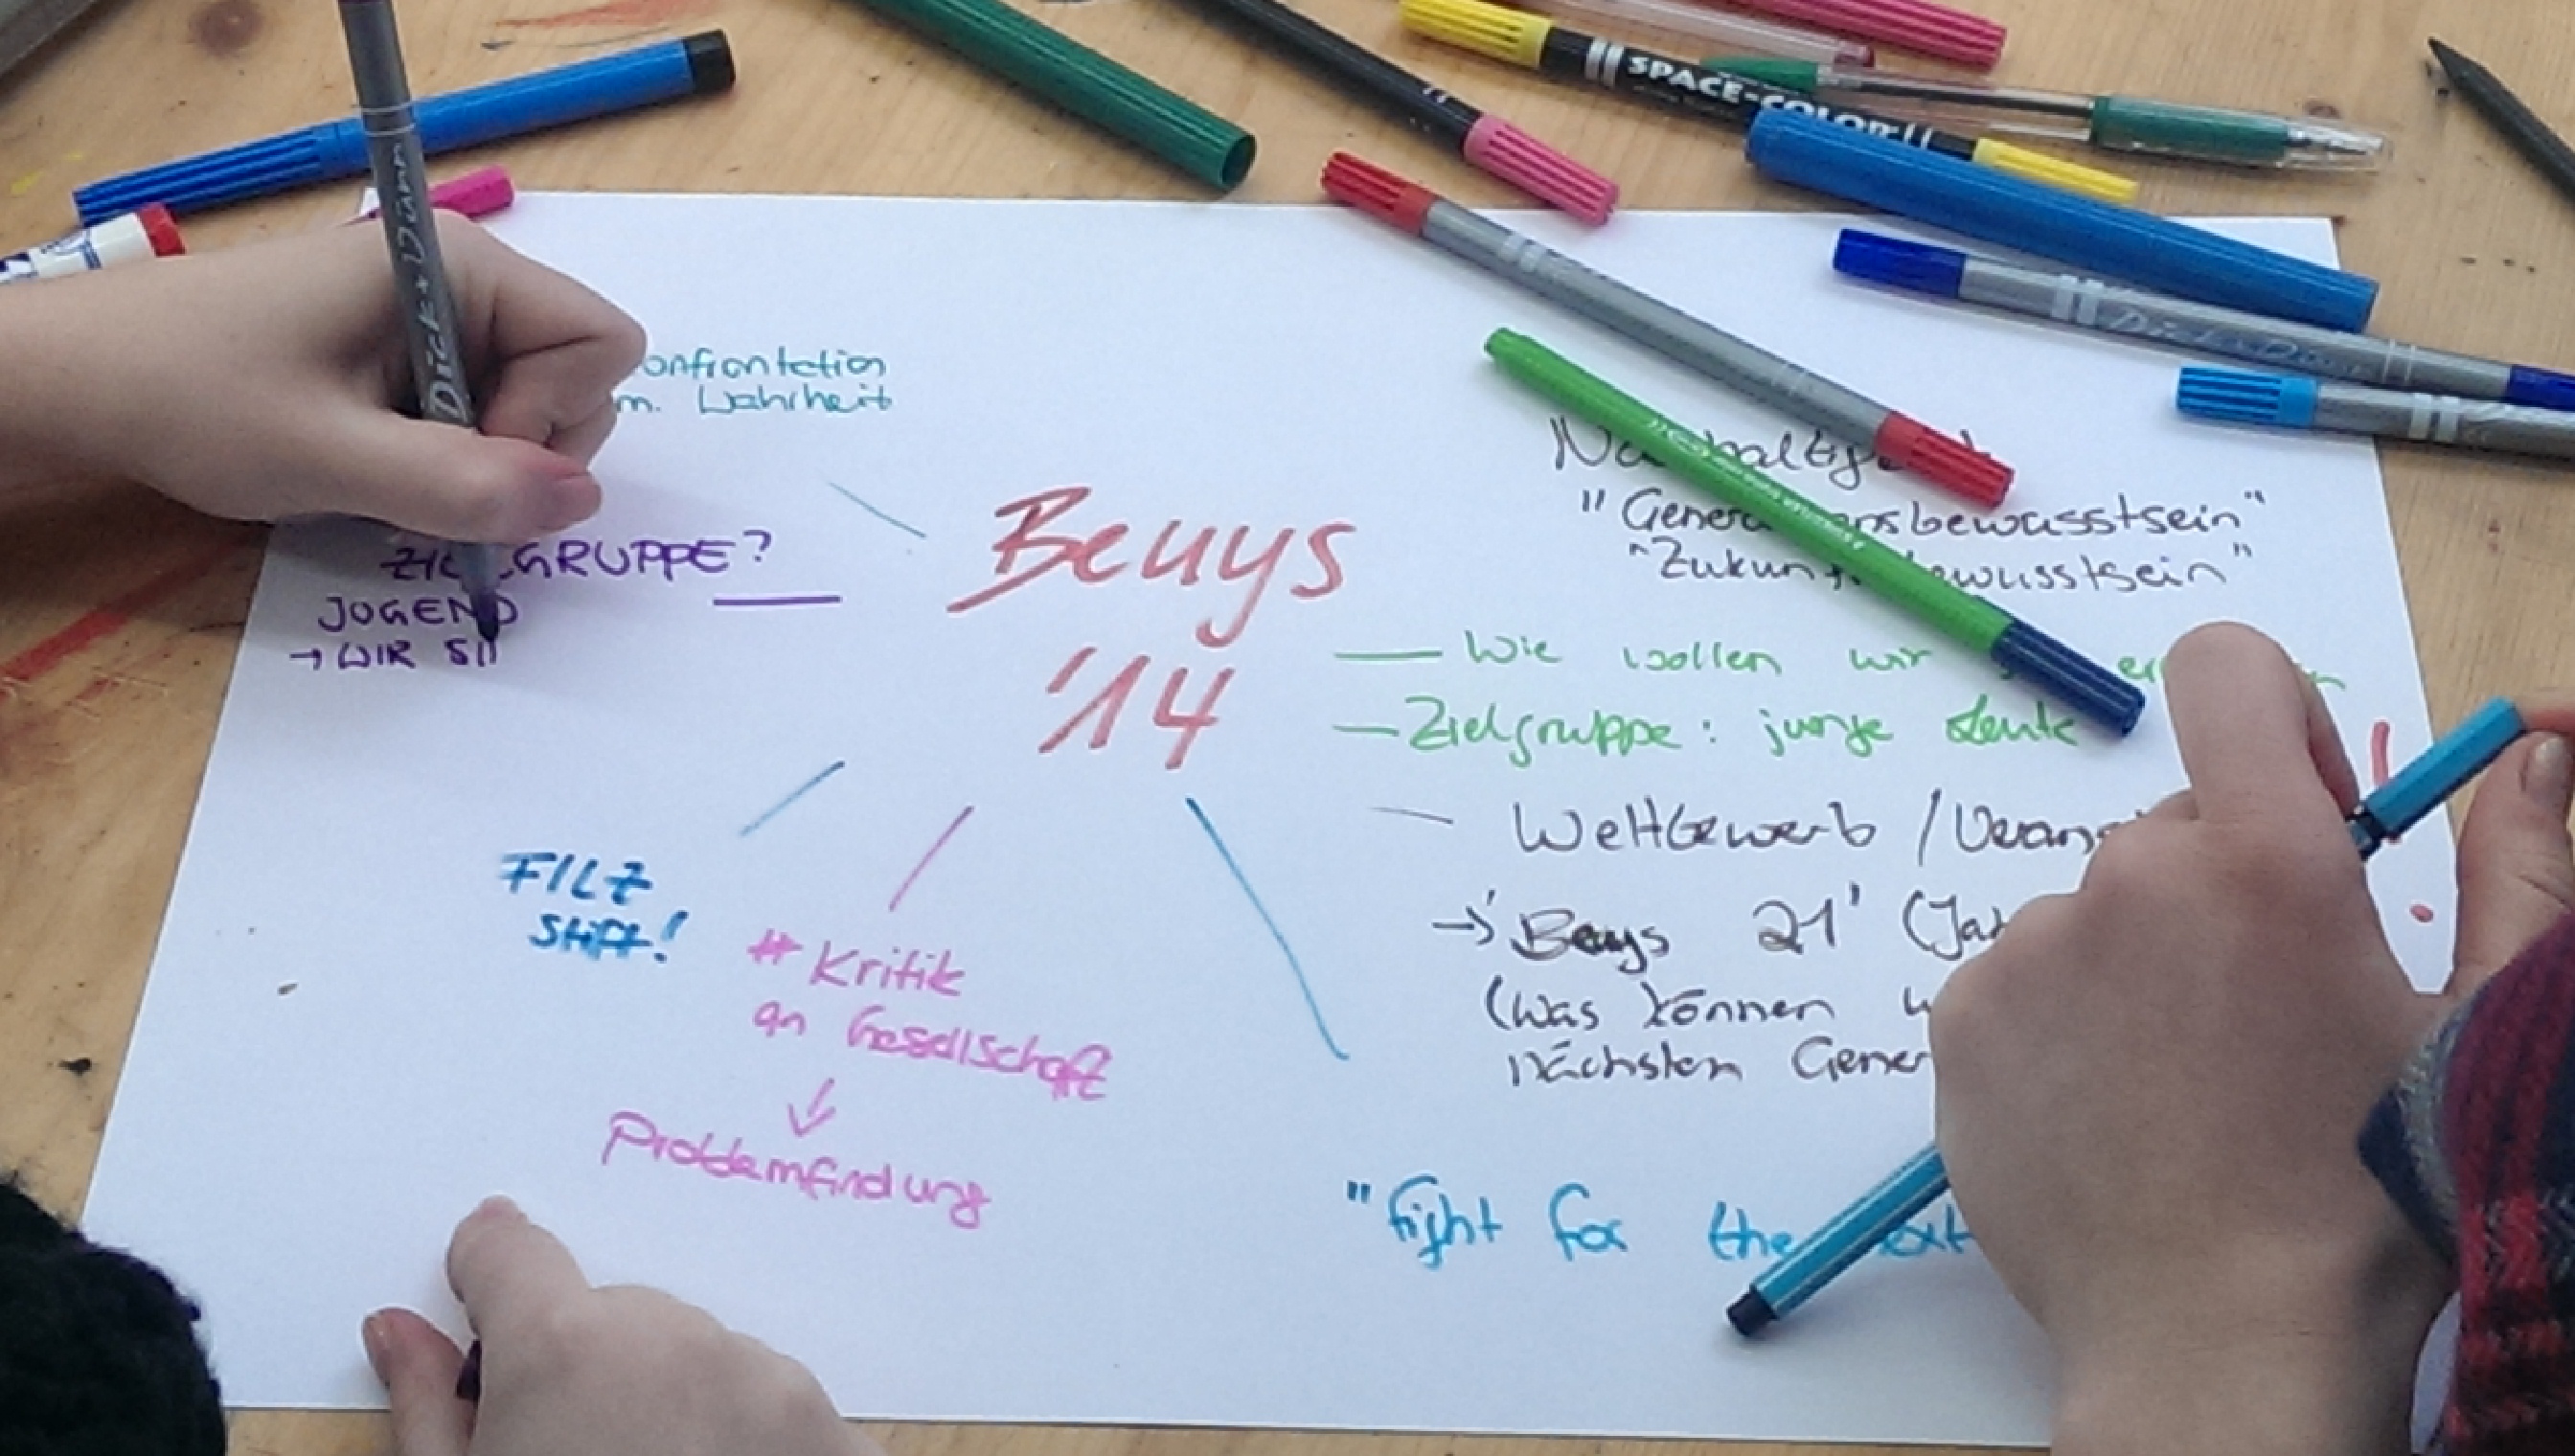 SPACE-COLOR
Dick + Dünn
m. Wahrheit
ZIELGRUPPE?
JUGEND
→ WIR
Beuys
'14
"Generationsbewusstsein"
"Zukunftsbewusstsein"
— Wie wollen wir
— Zielgruppe: junge Leute
— Wettbewerb /
→ Beuys 21' (
(was können
nächsten
"fight for the next
FILZ
STIFT!
# Kritik
an Gesellschaft
↓
Problemfindung
!